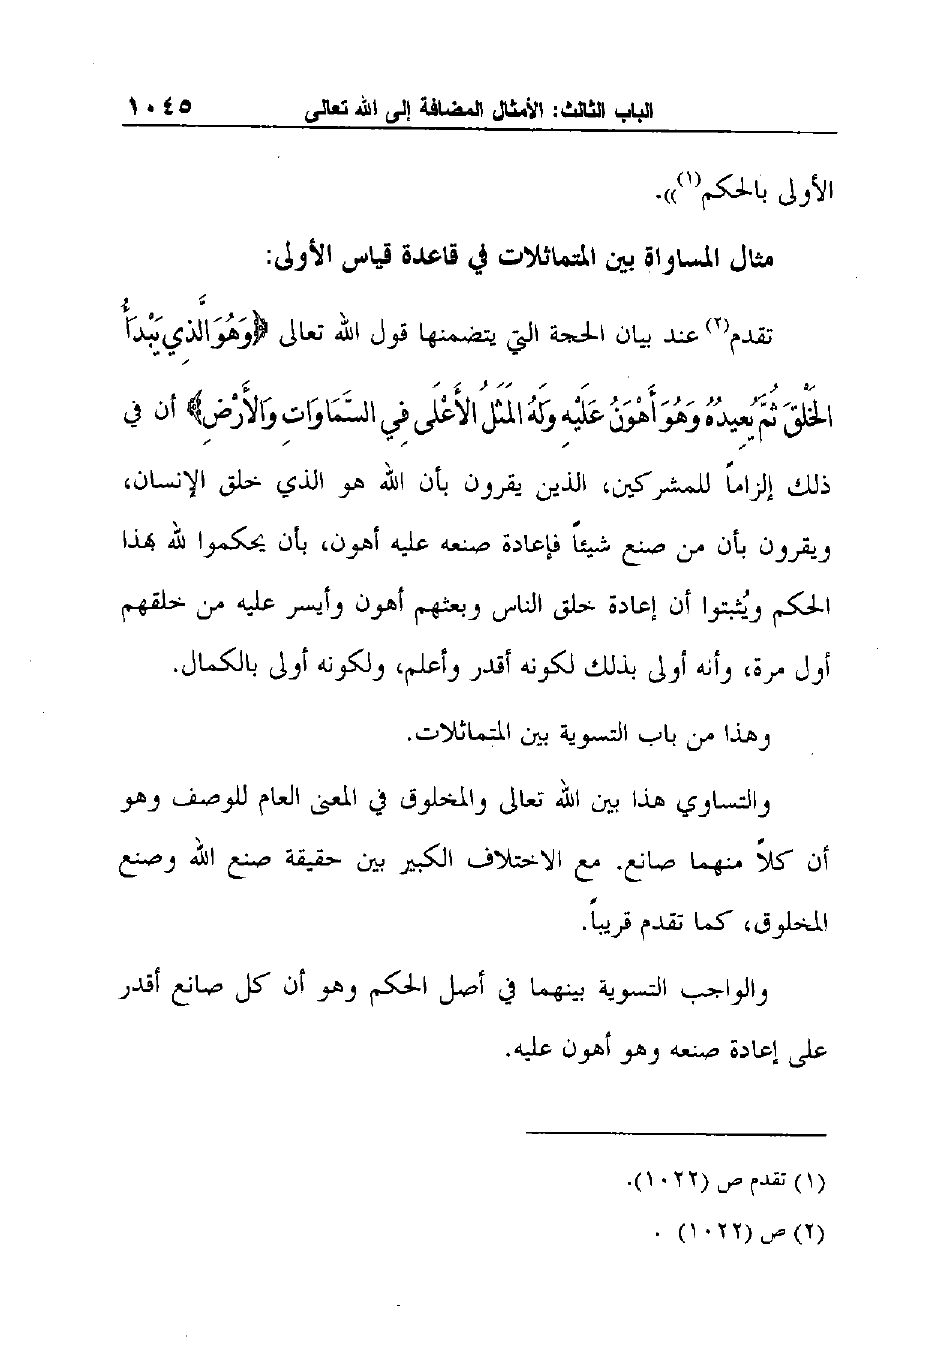 الباب الثالث: الأمثال المضافة إلى الله تعالى ١٠٤٥
الأولى بالحكم(١)».
مثال المساواة بين المتماثلات في قاعدة قياس الأولى:
تقدم(٢) عند بيان الحجة التي يتضمنها قول الله تعالى ﴿وَهُوَ الَّذِي يَبْدَأُ
الخَلْقَ ثُمَّ يُعِيدُهُ وَهُوَ أَهْوَنُ عَلَيْهِ وَلَهُ المَثَلُ الأَعْلَى فِي السَّمَاوَاتِ وَالأَرْضِ﴾ أن في
ذلك إلزاماً للمشركين، الذين يقرون بأن الله هو الذي خلق الإنسان،
ويقرون بأن من صنع شيئاً فإعادة صنعه عليه أهون، بأن يحكموا لله بهذا
الحكم ويُثبتوا أن إعادة خلق الناس وبعثهم أهون وأيسر عليه من خلقهم
أول مرة، وأنه أولى بذلك لكونه أقدر وأعلم، ولكونه أولى بالكمال.
وهذا من باب التسوية بين المتماثلات.
والتساوي هذا بين الله تعالى والمخلوق في المعنى العام للوصف وهو
أن كلاً منهما صانع. مع الاختلاف الكبير بين حقيقة صنع الله وصنع
المخلوق، كما تقدم قريباً.
والواجب التسوية بينهما في أصل الحكم وهو أن كل صانع أقدر
على إعادة صنعه وهو أهون عليه.
(١) تقدم ص (١٠٢٢).
(٢) ص (١٠٢٢) .